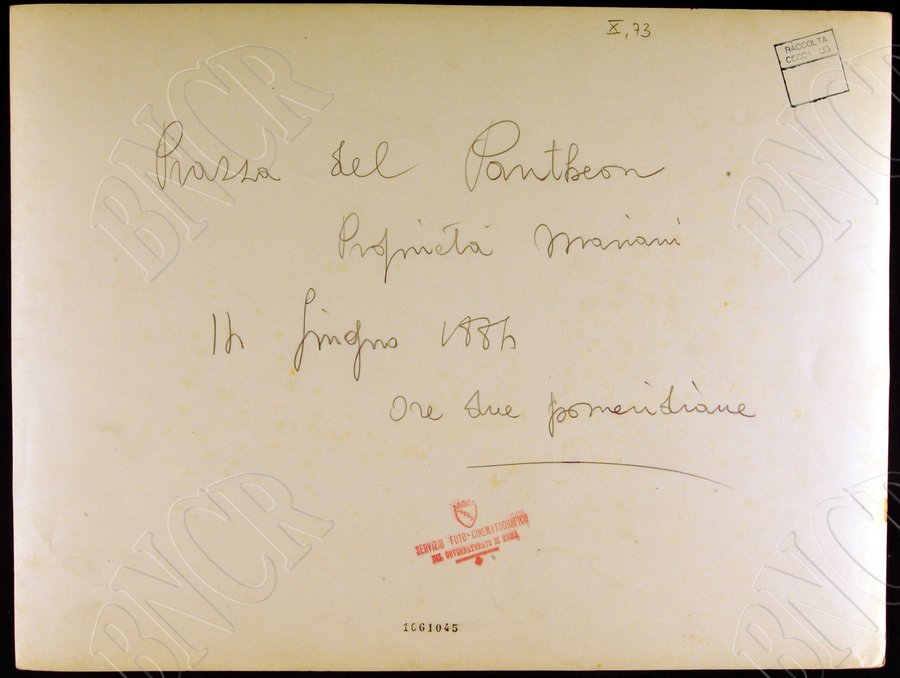 X, 73
RACCOLTA
CECCARIUS
Piazza del Pantheon
Proprietà Mariani
14 Giugno 1884
Ore due pomeridiane
SERVIZIO FOTO-CINEMATOGRAFICO
DEL GOVERNATORATO DI ROMA
1661045
BNCR
BNCR
BNCR
BNCR